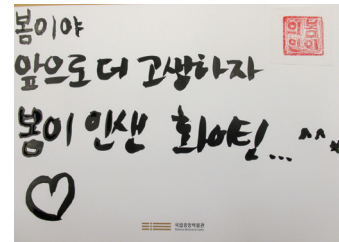 봄이야
앞으로 더 고생하자
봄이 인생 화이팅... ^^*
국립중앙박물관